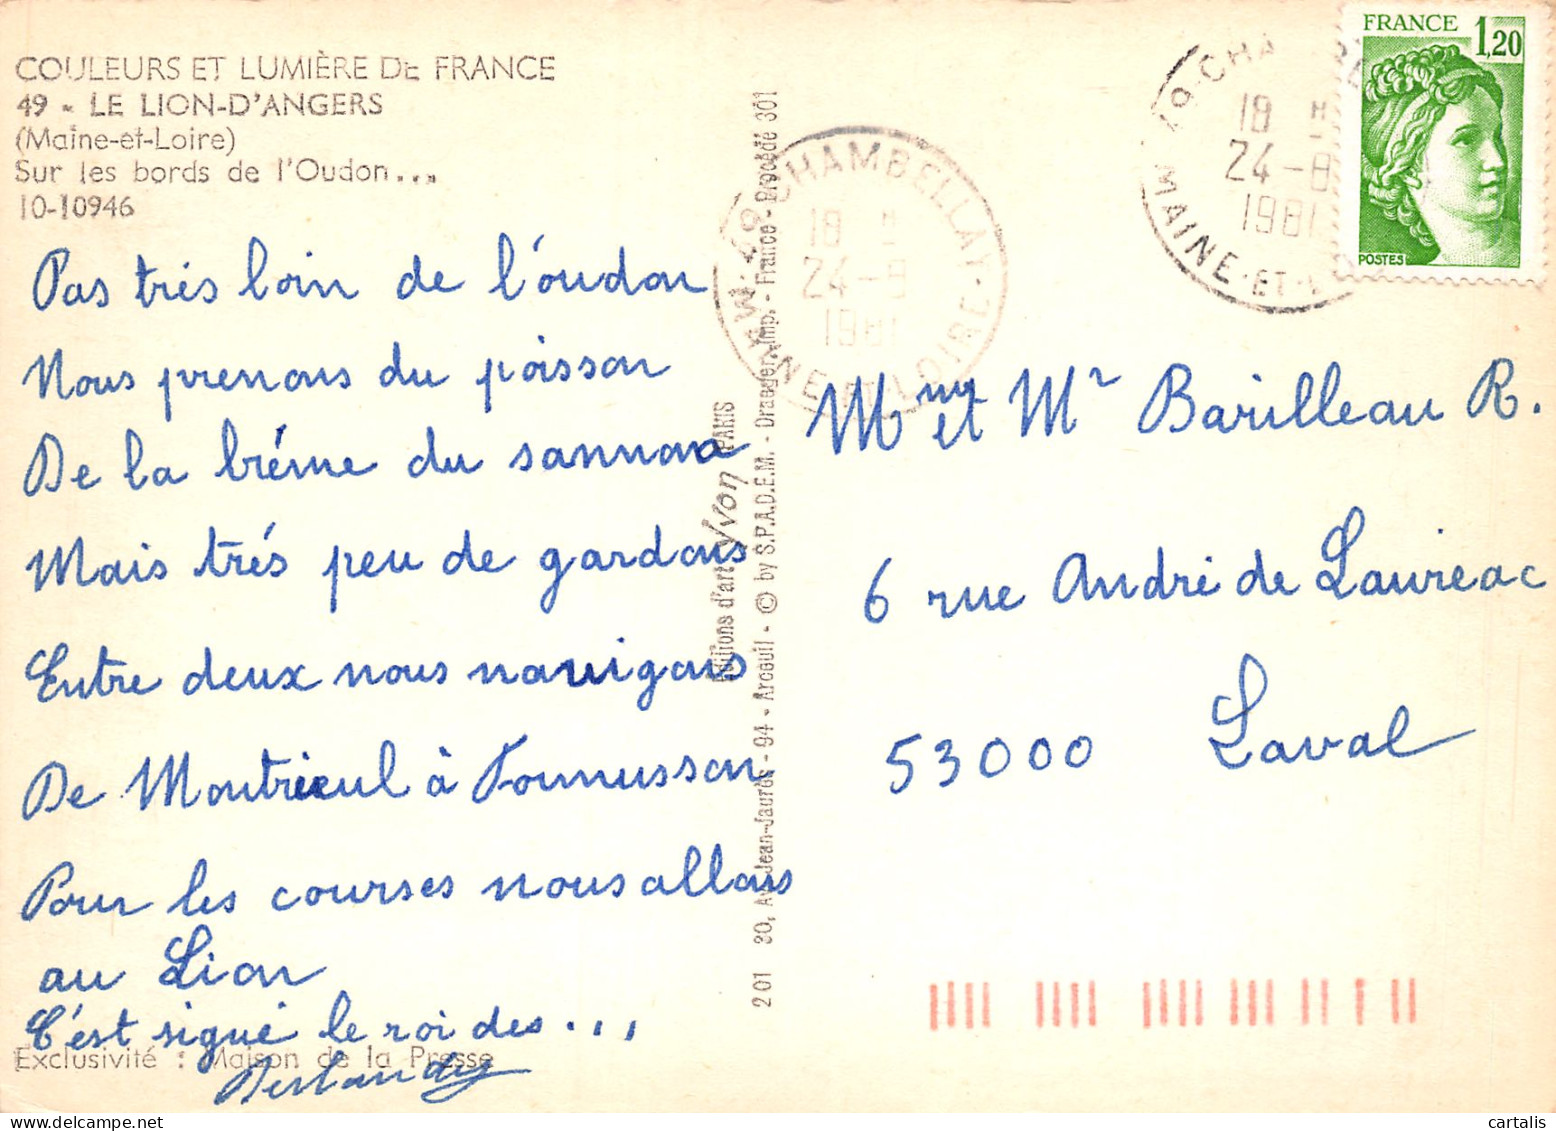 COULEURS ET LUMIÈRE DE FRANCE
49 - LE LION-D'ANGERS
(Maine-et-Loire)
Sur les bords de l'Oudon...
10-10946
Pas trés loin de l'oudon
Nous prenons du poisson
De la bréme du sannona
Mais trés peu de gardons
Entre deux nous navigons
De Montrieul à
Pour les courses nous allons
au Lion
C'est signé le roi des...
Exclusivité : Maison de la Presse
Éditions d'art Yvon PARIS
201 30, Av. Jean-Jaurès - 94 - Arcueil - © by S.P.A.D.E.M. - Draeger, Imp. - France - Procédé 301
49 CHAMBELLAY
18 H
24-8
1981
MAINE-ET-LOIRE
49 CHA
18 H
24-8
1981
MAINE-ET-L
FRANCE 1,20
POSTES
Mme et Mr Barilleau R.
6 rue André de Lavireac
53000 Laval
cartalis